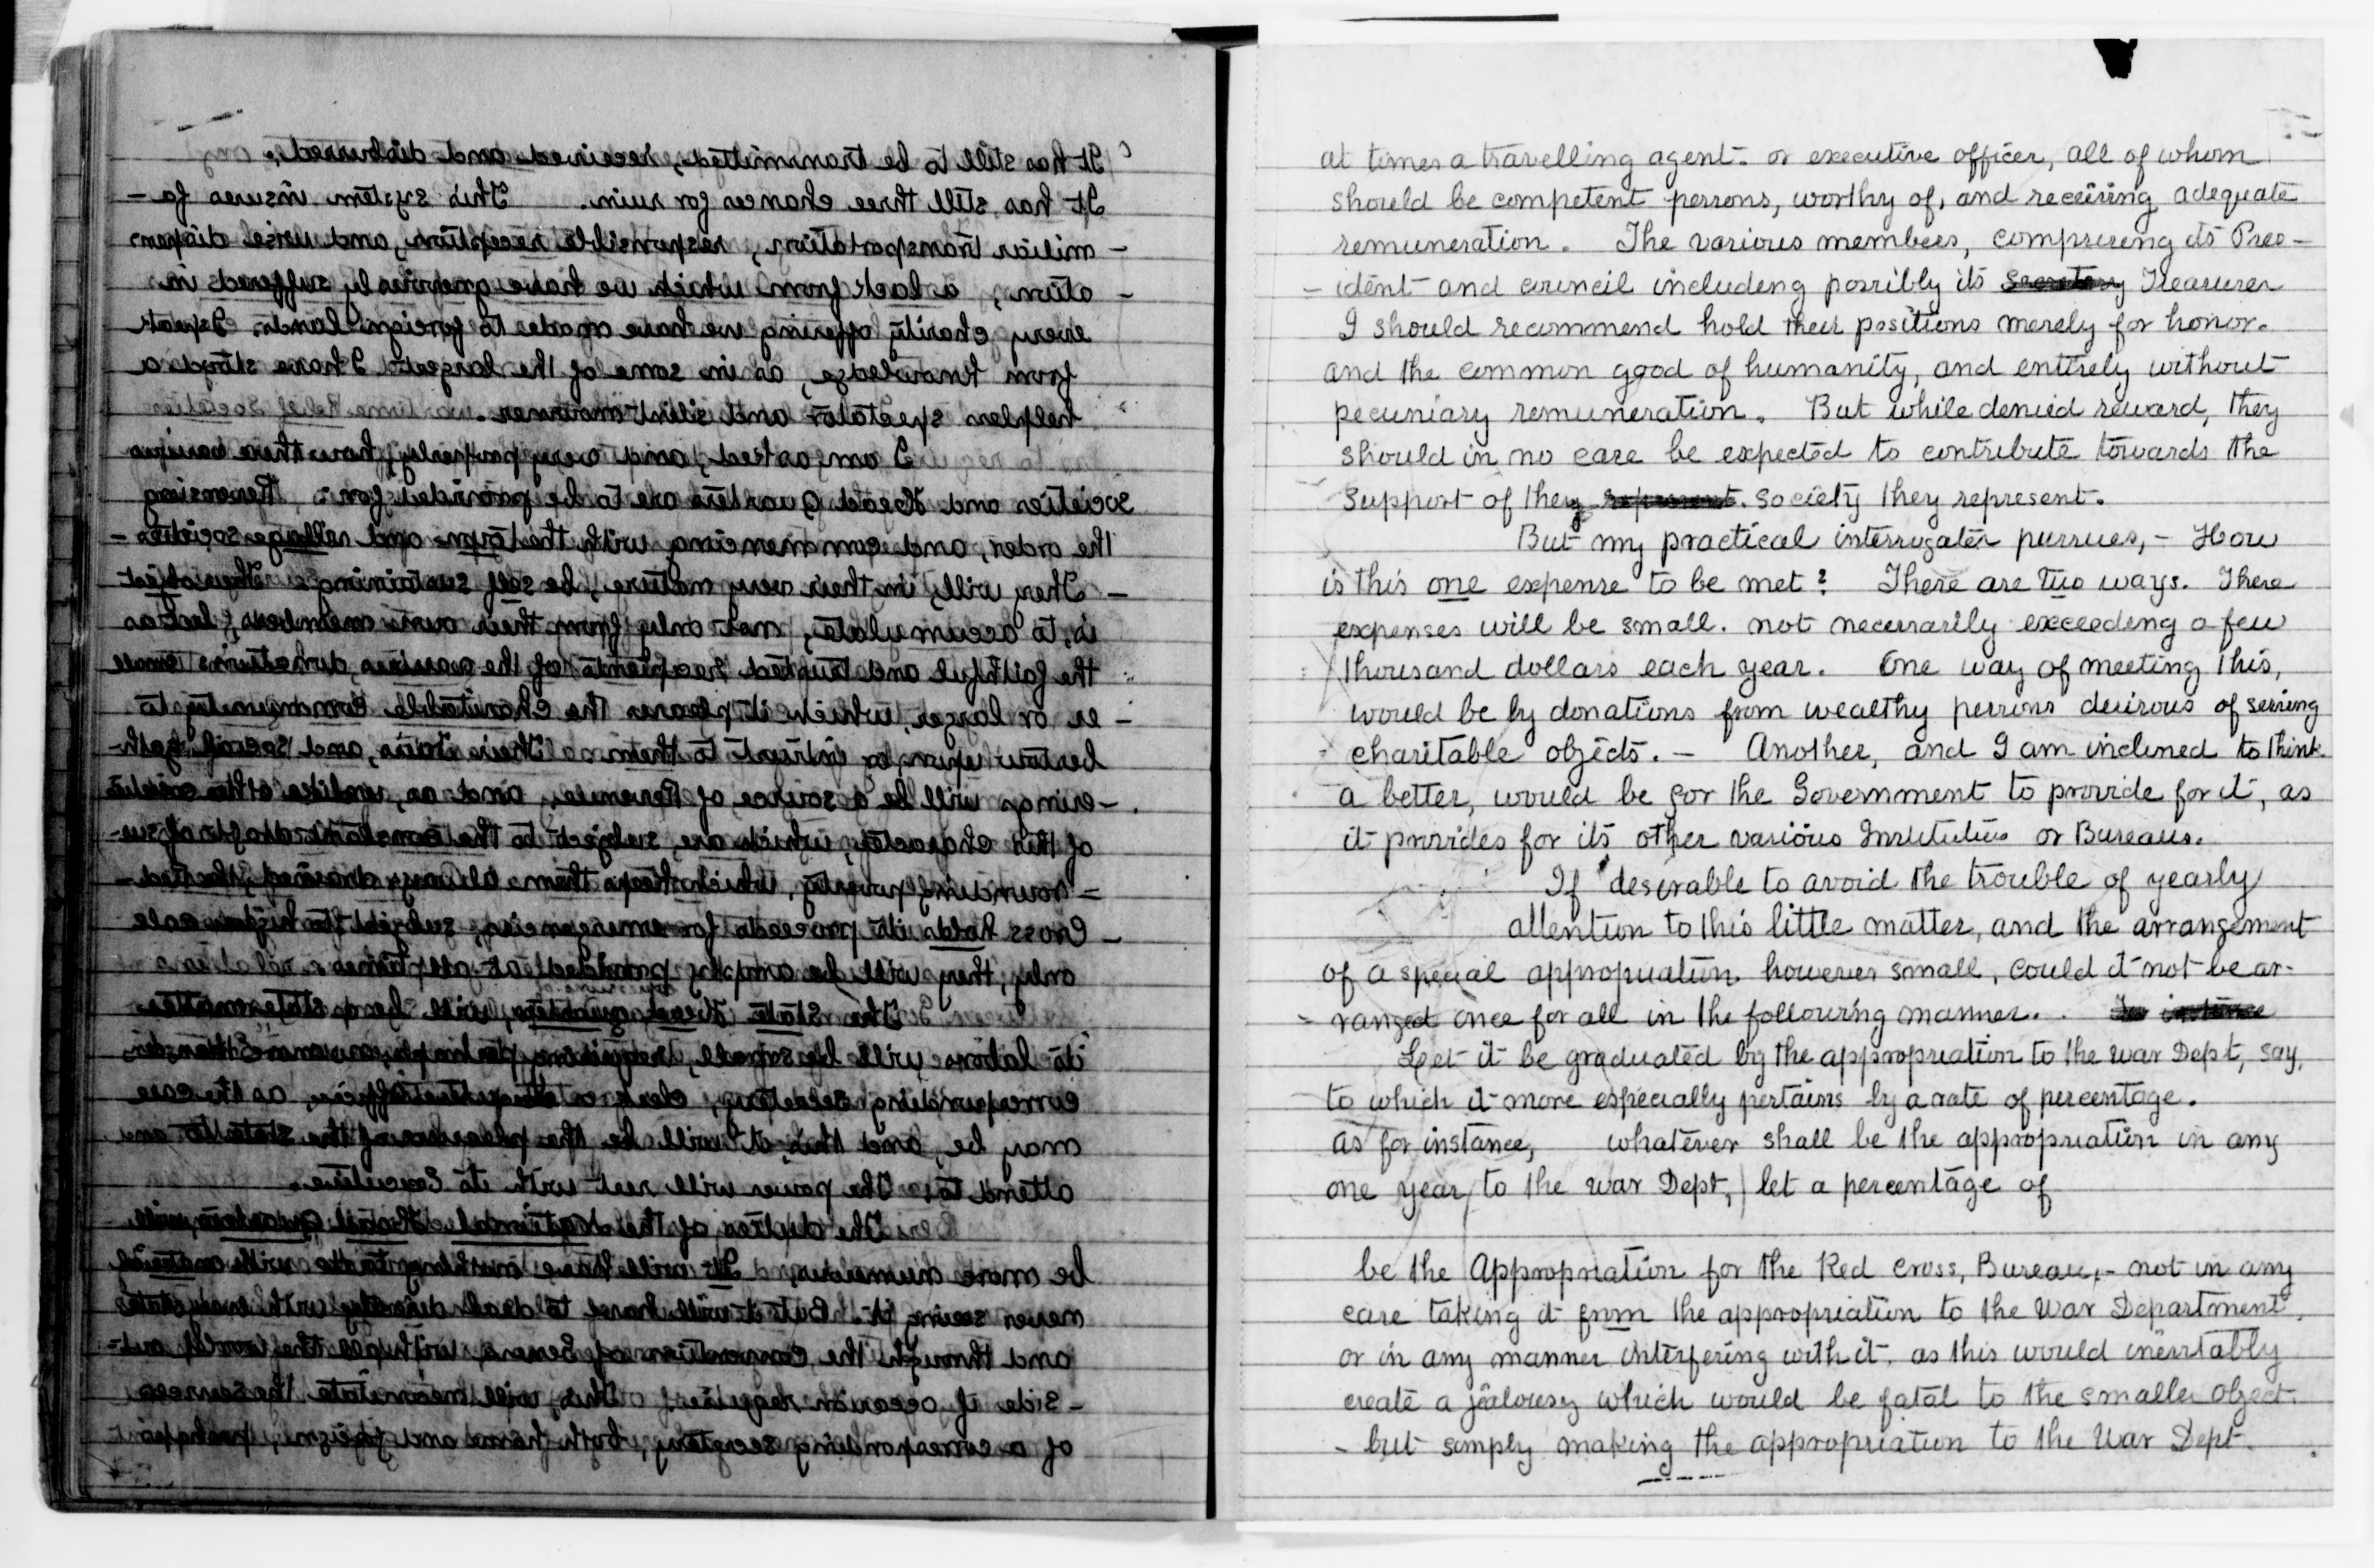 It has still to be transmitted, received and disbursed.
It has still three chances for ruin. This system insures fa-
-miliar transportation, responsible reception, and wise dispen-
-ation, a lack from which we have grievously suffered in
every charity offering we have made to foreign lands. I speak
from knowledge, as in some of the largest I have stood a
helpless spectator and silent mourner.
I am asked, and very properly, how these various
societies and Head Quarters are to be provided for. Reversing
the order, and commencing with the town and village societies -
- They will, in their very nature, be self sustaining, their object
is, to accumulate, not only from their own members, but as
the faithful and trusted recipients of the various donations small
-er or larger, which it pleases the charitable community to
bestow upon, or intrust to them. Their fairs, and social gath-
-erings will be a source of Revenue, and as, unlike other societies
of this character, which are, subject to the constant drafts of sur-
-rounding poverty, which keeps them always drained, the Red-
- Cross holds its proceeds for emergencies, subject to higher calls
only, they will be amply provided at all times
The State Head quarters, will, be a state matter
its labors will be small, requiring perhaps, no more than,
corresponding secretary, clerk or executive officer, as the case
may be, and this, it will be the pleasure of the state to
attend to; The power will rest with its Executive.
The duties of the National Head Quarters, will
be more numerous, It will have nothing to do with material
never seeing it. But it will have to deal directly with every state
and through the Convention of Geneva, with all the world out-
-side if occasion requires, This, will necessitate the services
of a corresponding secretary, both home and foreign, perhaps
at times a travelling agent - or executive officer, all of whom
should be competent persons, worthy of, and receiving adequate
remuneration. The various members, comprising its Pres-
-ident and council including possibly its Secretary Treasurer
I should recommend hold their positions merely for honor.
and the common good of humanity, and entirely without
pecuniary remuneration. But while denied reward, they
should in no case be expected to contribute towards the
support of they represent. society they represent.
But my practical interrogater pursues, - How
is this one expense to be met? There are two ways. There
expenses will be small. not necessarily exceeding a few
thousand dollars each year. One way of meeting this,
would be by donations from wealthy persons desirous of serving
charitable objects. - Another, and I am inclined to think
a better, would be for the Government to provide for it, as
it provides for its other various Institutions or Bureaus.
If desirable to avoid the trouble of yearly
attention to this little matter, and the arrangement
of a special appropriation however small, could it not be ar-
- ranged once for all in the following manner. . In instance
Let it be graduated by the appropriation to the War Dept, say,
to which it more especially pertains by a rate of percentage.
as for instance, whatever shall be the appropriation in any
one year, to the War Dept, let a percentage of
be the Appropriation for the Red Cross, Bureau, - not in any
case taking it from the appropriation to the War Department,
or in any manner interfering with it, as this would inevitably
create a jealousy which would be fatal to the smaller object.
- but simply making the appropriation to the War Dept.